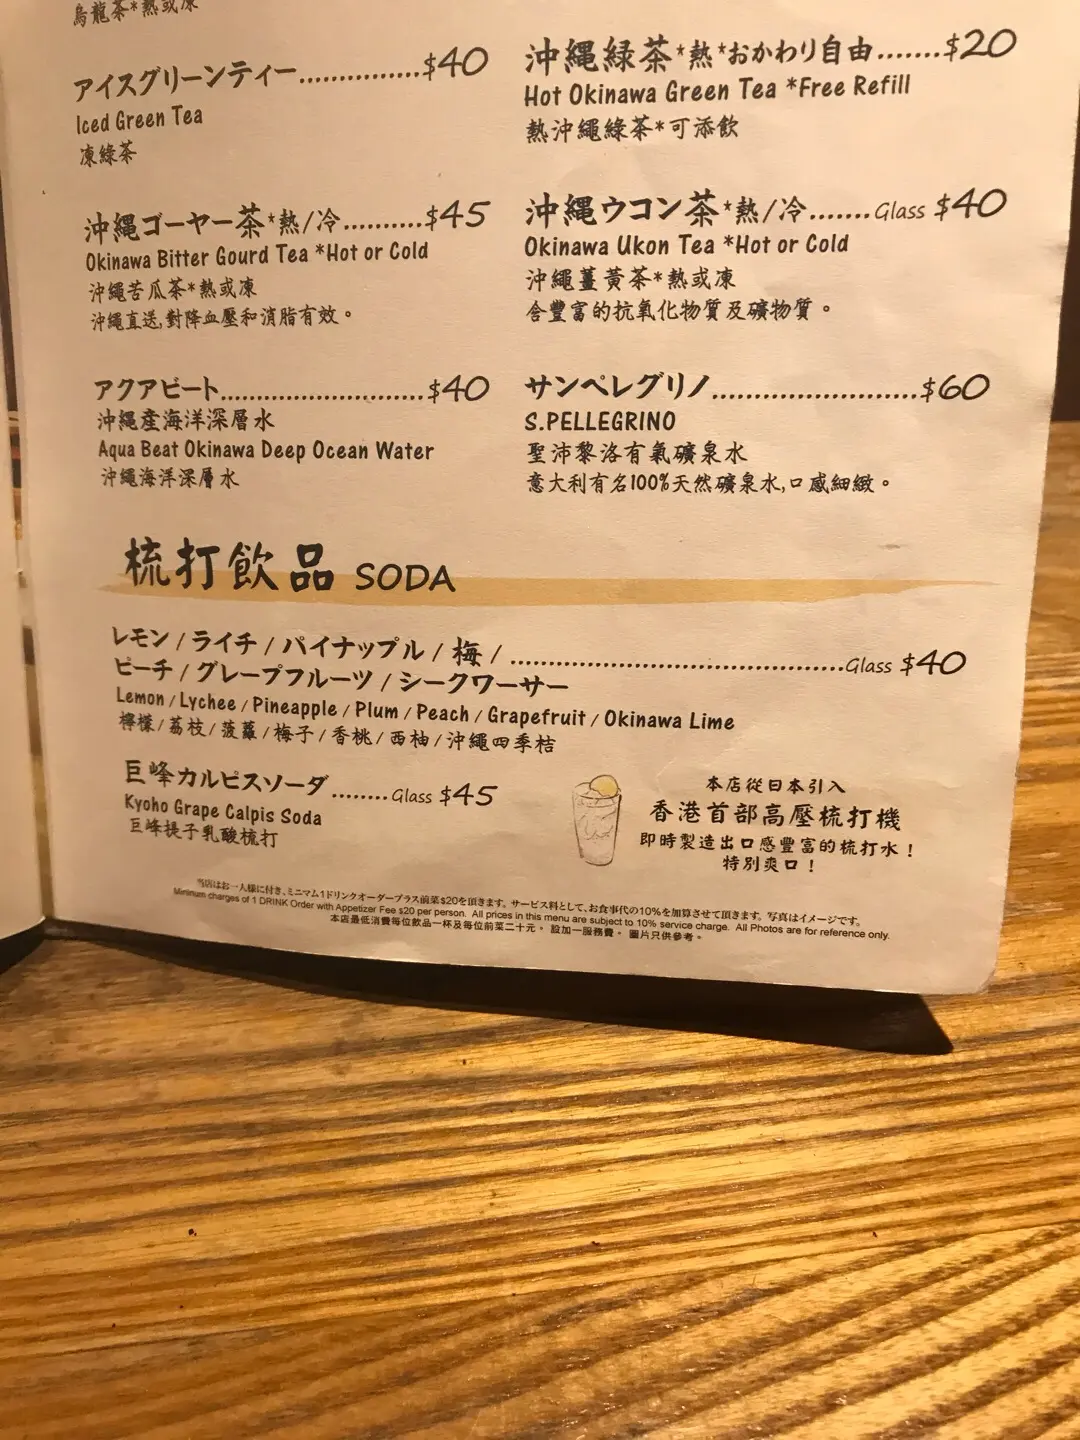 烏龍茶*熱或凍
アイスグリーンティー...............$40
Iced Green Tea
凍綠茶
沖縄緑茶*熱*おかわり自由.......$20
Hot Okinawa Green Tea *Free Refill
熱沖繩綠茶*可添飲
沖縄ゴーヤー茶*熱/冷..........$45
Okinawa Bitter Gourd Tea *Hot or Cold
沖繩苦瓜茶*熱或凍
沖繩直送,對降血壓和消脂有效。
沖縄ウコン茶*熱/冷.......Glass $40
Okinawa Ukon Tea *Hot or Cold
沖繩薑黃茶*熱或凍
含豐富的抗氧化物質及礦物質。
アクアビート..........................$40
沖縄産海洋深層水
Aqua Beat Okinawa Deep Ocean Water
沖繩海洋深層水
サンペレグリノ.......................$60
S.PELLEGRINO
聖沛黎洛有氣礦泉水
意大利有名100%天然礦泉水,口感細緻。
梳打飲品 SODA
レモン / ライチ / パイナップル / 梅 /
ピーチ / グレープフルーツ / シークワーサー ..........................................Glass $40
Lemon / Lychee / Pineapple / Plum / Peach / Grapefruit / Okinawa Lime
檸檬 / 荔枝 / 菠蘿 / 梅子 / 香桃 / 西柚 / 沖繩四季桔
巨峰カルピスソーダ ........Glass $45
Kyoho Grape Calpis Soda
巨峰提子乳酸梳打
本店從日本引入
香港首部高壓梳打機
即時製造出口感豐富的梳打水！
特別爽口！
当店はお一人様に付き、ミニマム1ドリンクオーダープラス前菜$20を頂きます。サービス料として、お食事代の10%を加算させて頂きます。写真はイメージです。
Minimum charges of 1 DRINK Order with Appetizer Fee $20 per person. All prices in this menu are subject to 10% service charge. All Photos are for reference only.
本店最低消費每位飲品一杯及每位前菜二十元。 設加一服務費。 圖片只供參考。